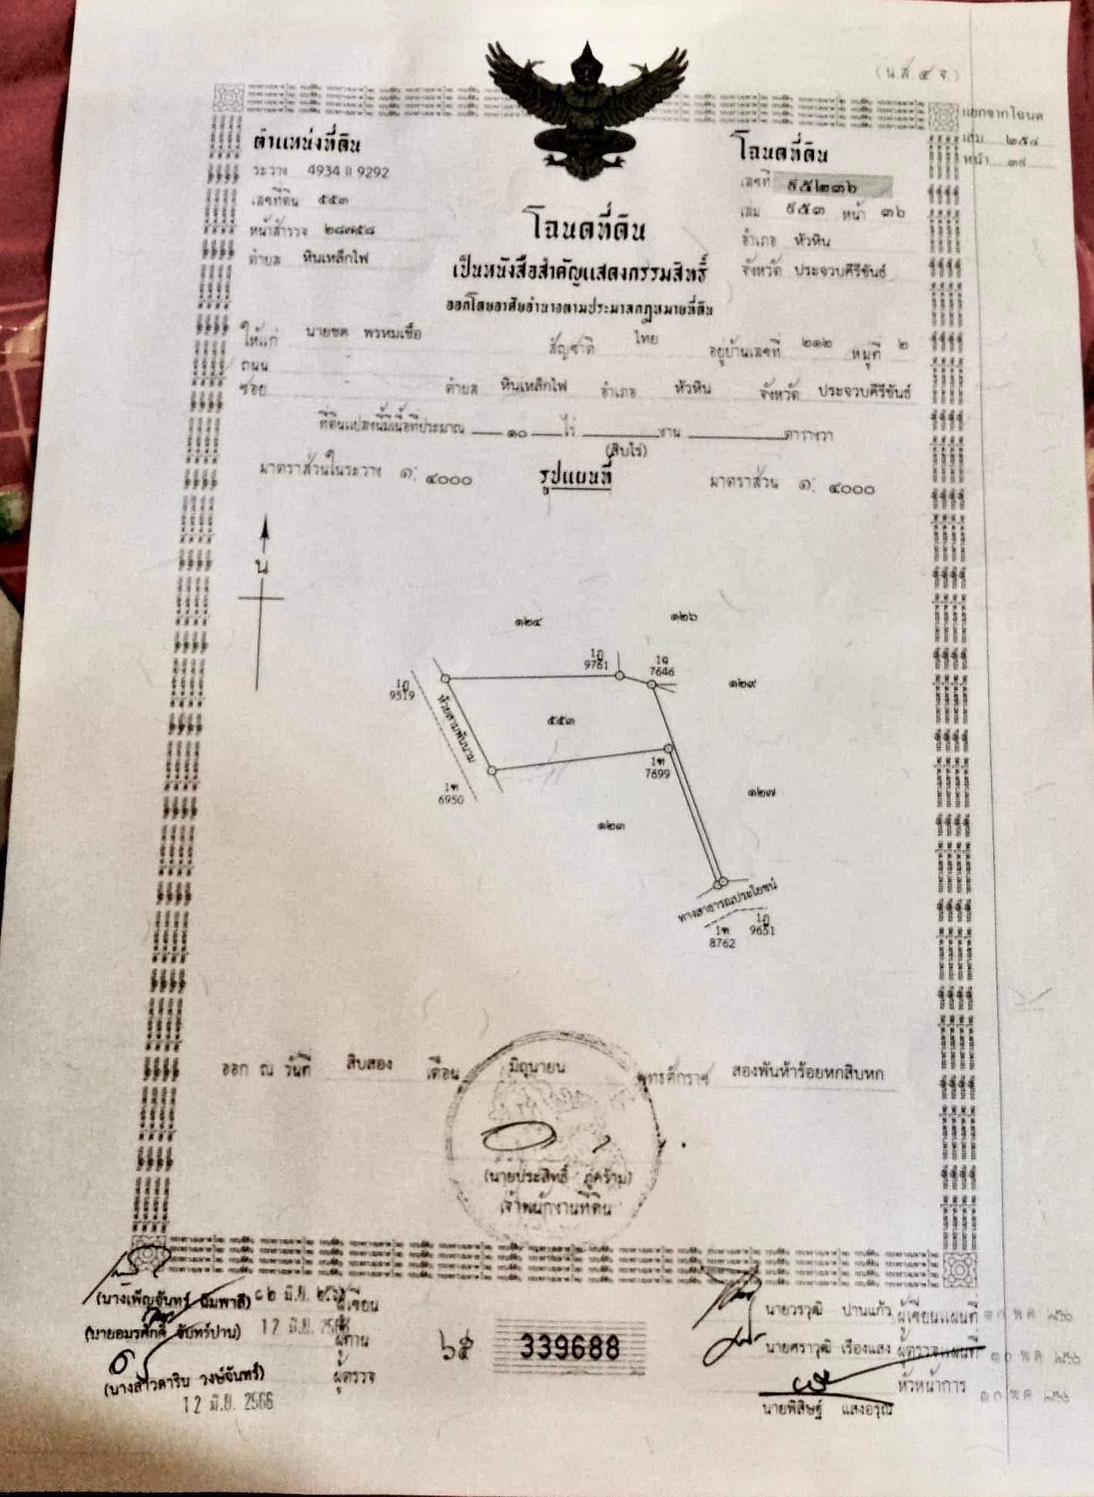 (น.ส. ๔ จ.)
แยกจากโฉนด
เล่ม ๒๕๔
หน้า ๓๙
ตำแหน่งที่ดิน
ระวาง 4934 II 9292
เลขที่ดิน ๕๕๓
หน้าสำรวจ ๒๘๗๕๘
ตำบล หินเหล็กไฟ
โฉนดที่ดิน
เลขที่ ๕๕๒๓๖
เล่ม ๕๕๓ หน้า ๓๖
อำเภอ หัวหิน
จังหวัด ประจวบคีรีขันธ์
โฉนดที่ดิน
เป็นหนังสือสำคัญแสดงกรรมสิทธิ์
ออกโดยอาศัยอำนาจตามประมวลกฎหมายที่ดิน
ให้แก่ นายชด พรหมเชื้อ สัญชาติ ไทย อยู่บ้านเลขที่ ๒๑๒ หมู่ที่ ๒
ถนน
ซอย ตำบล หินเหล็กไฟ อำเภอ หัวหิน จังหวัด ประจวบคีรีขันธ์
ที่ดินแปลงนี้มีเนื้อที่ประมาณ ๑๐ ไร่ งาน ตารางวา
(สิบไร่)
มาตราส่วนในระวาง ๑: ๔๐๐๐ รูปแผนที่ มาตราส่วน ๑: ๔๐๐๐
น
๑๒๔ ๑๒๖
1ฎ
9761
1ฉ
7646
1ฎ
9519
๑๒๙
ห้วยสามพันนาม
๕๕๓
1ฑ
7699
1ฑ
6950
๑๒๗
๑๒๓
ทางสาธารณประโยชน์
1ฑ
8762
1ฎ
9651
ออก ณ วันที่ สิบสอง เดือน มิถุนายน พุทธศักราช สองพันห้าร้อยหกสิบหก
(นายประสิทธิ์ ภู่คร้าม)
เจ้าพนักงานที่ดิน
(นางเพ็ญจันทร์ ฉิมพาลี) ๑๒ มิ.ย. ผู้เขียน
(นายอมรศักดิ์ จันทร์ปาน) 12 มิ.ย. 2566 ผู้ทาน
(นางสาวดาริน วงษ์จันทร์) ผู้ตรวจ
12 มิ.ย. 2566
๖๕ 339688
นายวรวุฒิ ปานแก้ว ผู้เขียนแผนที่
นายศราวุฒิ เรืองแสง ผู้ตรวจแผนที่
หัวหน้าการ
นายพิสิษฐ์ แสงอรุณ